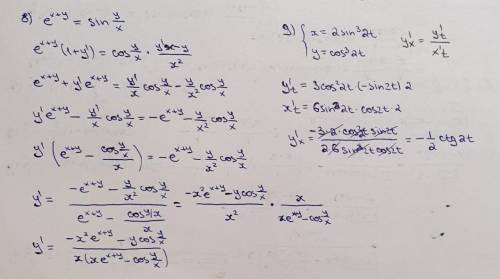 8) e^{x+y} = sin y/x
e^{x+y} (1+y') = cos y/x · (y'x-y)/x²
e^{x+y} + y'e^{x+y} = y'/x cos y/x - y/x² cos y/x
y'e^{x+y} - y'/x cos y/x = -e^{x+y} - y/x² cos y/x
y' (e^{x+y} - (cos y/x)/x) = -e^{x+y} - y/x² cos y/x
y' = (-e^{x+y} - y/x² cos y/x)/(e^{x+y} - (cos y/x)/x) = (-x²e^{x+y} - y cos y/x)/x² · x/(xe^{x+y} - cos y/x)
y' = (-x²e^{x+y} - y cos y/x)/(x(xe^{x+y} - cos y/x))
g) { x = 2sin³2t
y = cos³2t
y'ₓ = y'ₜ/x'ₜ
y'ₜ = 3cos²2t · (-sin2t) 2
x'ₜ = 6sin²2t · cos2t · 2
y'ₓ = (-3·2·cos²2t sin2t)/(2·6sin²2t cos2t) = -1/2 ctg2t